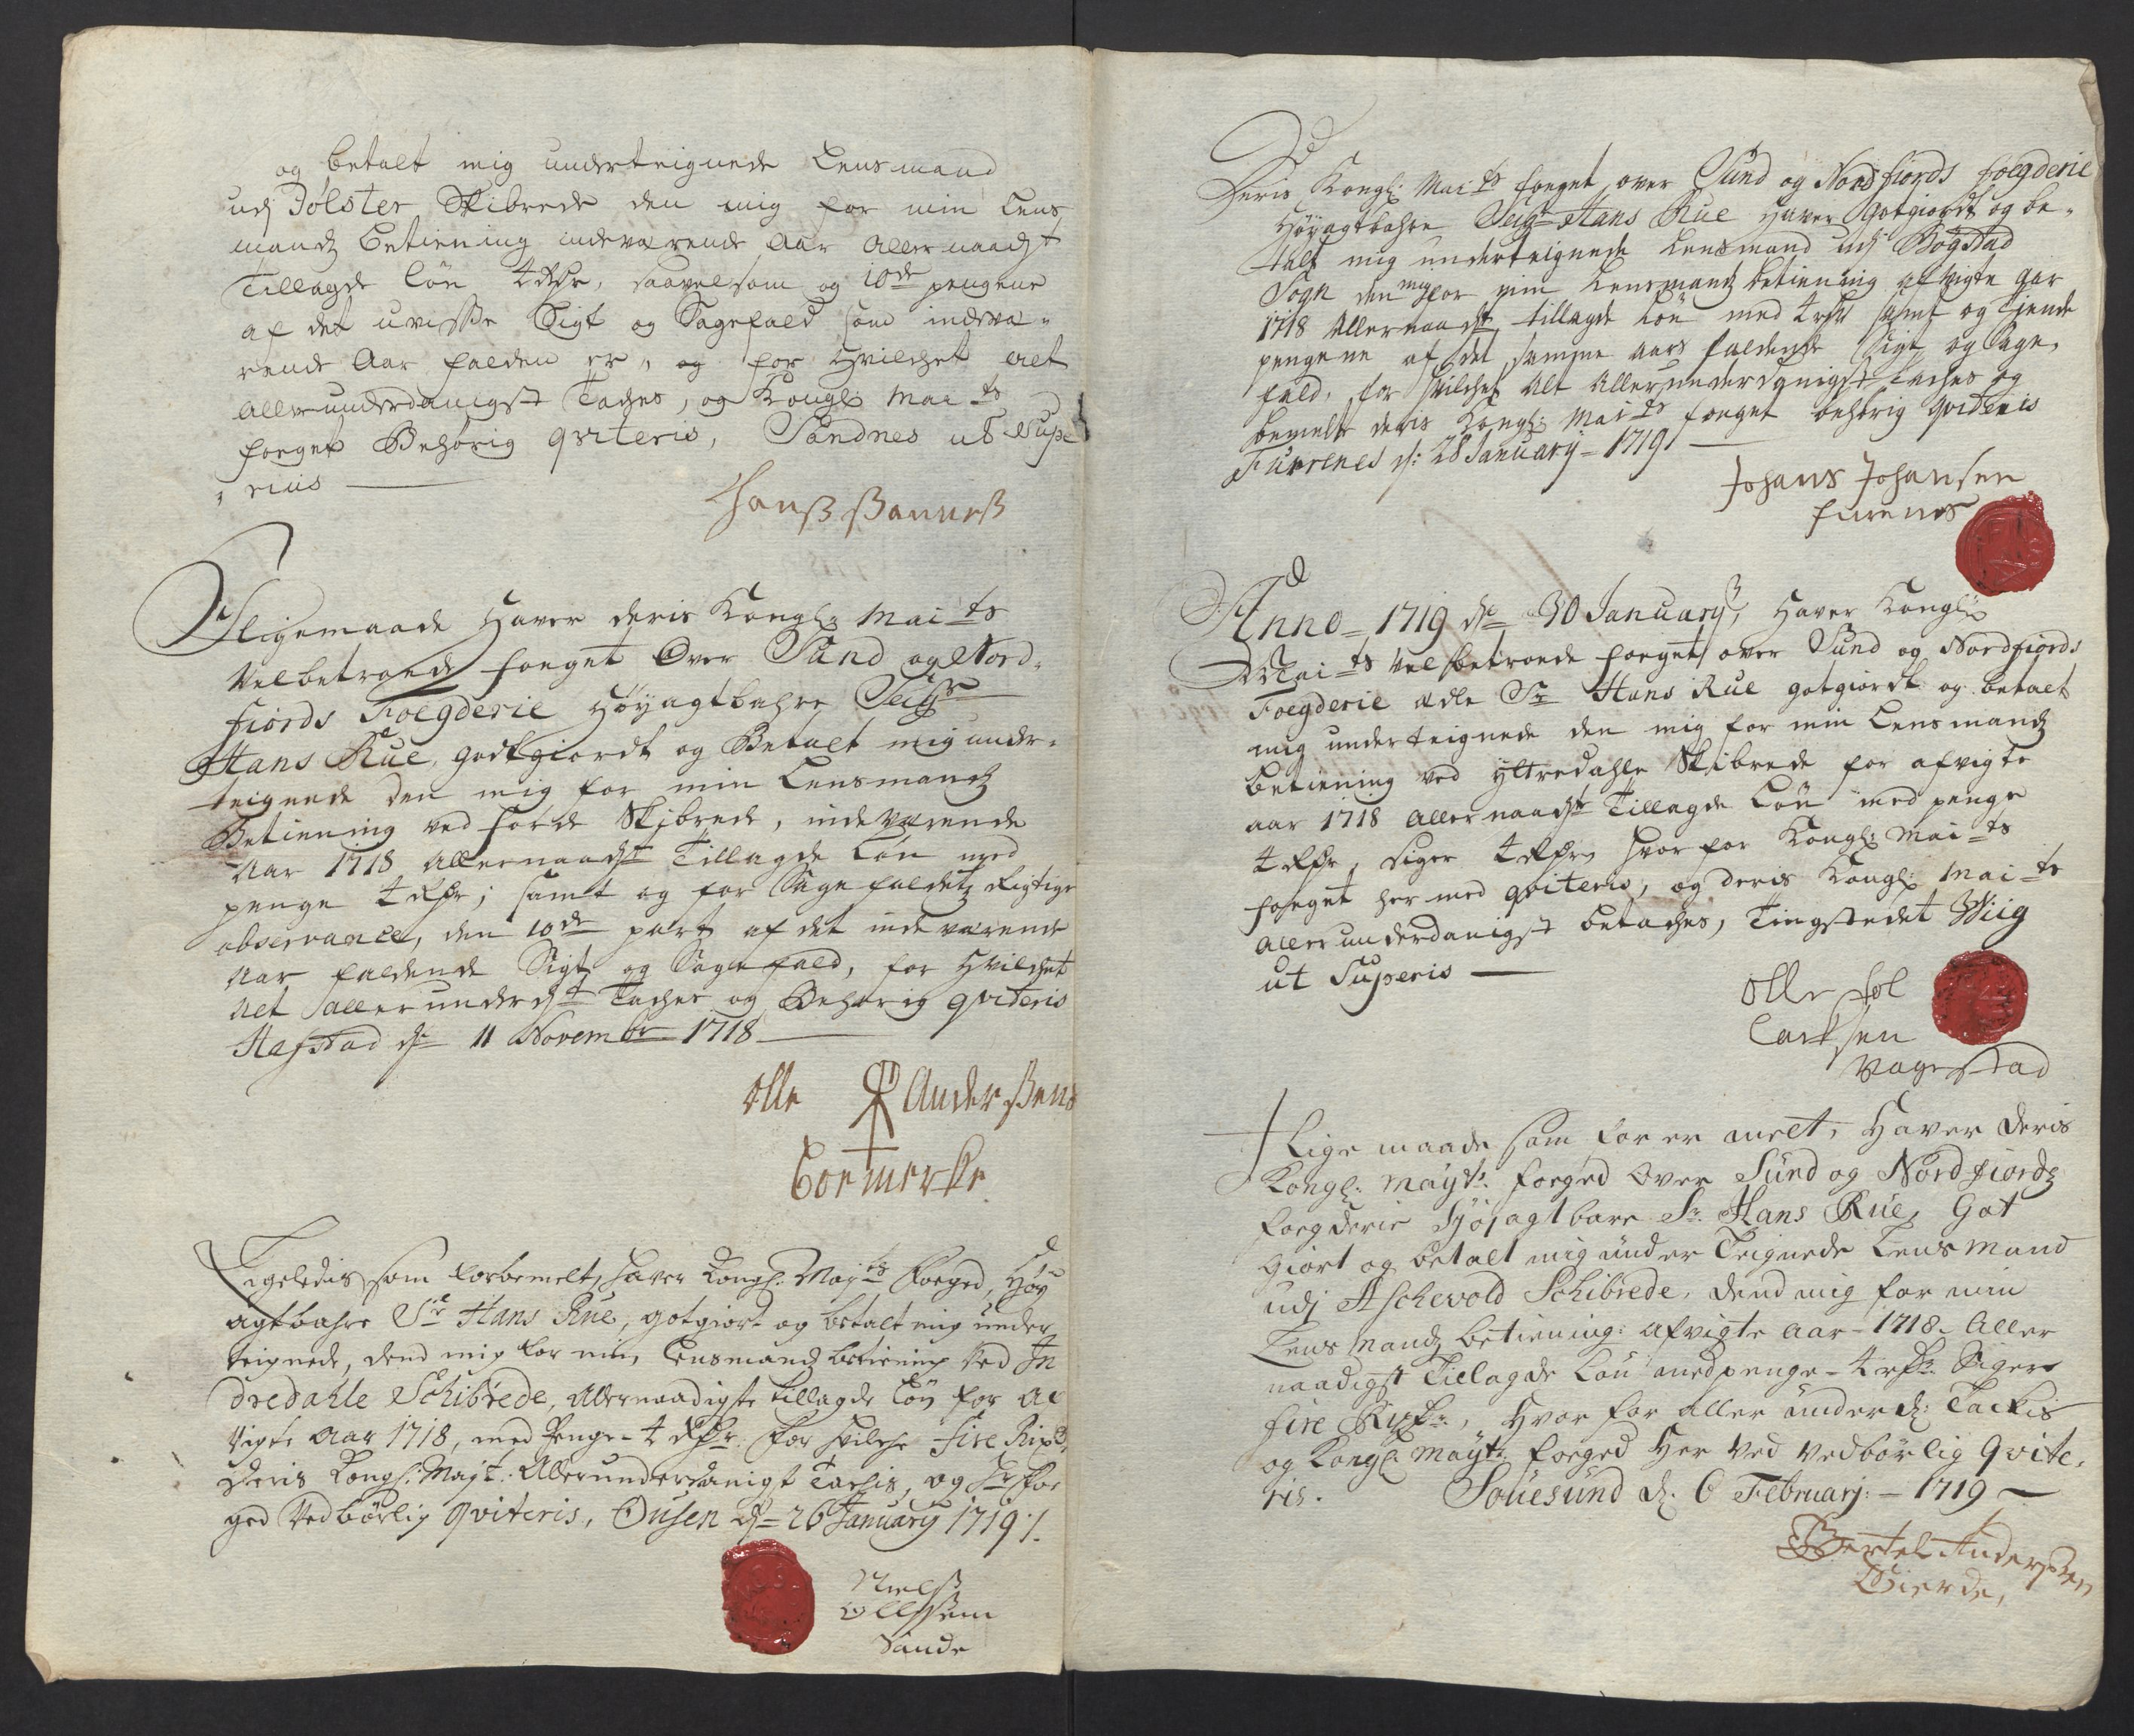 og betalt mig underteignede Lensmand
udj Jølster Skibrede den mig for min Lens
mandz betiening indeværende Aar Allernaadst
Tillagde løn 4 Rdr, saavelsom og 10de pengene
af det uvisse Sigt og Sagefald som indevæ-
rende Aar falden er, og for hvilchet alt
allerunderdanigst Taches, og Kongl: Mai ts
foeget Behørig qviteris, Sandnes ut Supe
rius
Hanss
Sligemaade Haver deris Kongl: Mai ts
Velbetroede foeget Over Sund og Nord-
fiords Foegderie Høyagtbahre Seigr
Hans Rue, godtgiordt og Betalt mig under-
teignede den mig for min Lensmandz
Betiening ved førde Skibrede, indeværende
Aar 1718 Allernaadst Tillagde Løn med
penge 4 Rdr, samt og for Sagefaldetz Rigtige
observance, den 10de part af det indeværende
Aar faldende Sigt og Sagefald, for Hvilchet
Alt allerunderdst Taches og Behørig qviteris
Hafstad d: 11 Novembr 1718
Olle Anderssens
Boemerke
Ligeledis som forbemelt, haver Kongl: Majts Foeged, Høy
agtbahre Sr Hans Rue, gotgiort og betalt mig under
teignede, dend mig for min Lensmandz betiening ved In
dredahle Schibrede, Allernaadigste tillagde Løn for af
vigte Aar 1718, med Penge 4 Rdr for hvilche fire Rixd
Deris Kongl: Majt: Allerunderdanigst Tachis, og Hr Foe
ged Vedbørlig Qviteris, Ousen d= 26 January 1719 ./.
Nielss
Ollssen
Sande
Deris Kongl: Mai ts foeget over Sund og Nordfiords foegderie
Høyagtbahre Seigr Hans Rue Haver Gotgiordt og be-
talt mig underteignede Lensmand udj Bogstad
Sogn den mig for min Lensmandz betiening afvigte aar
1718 Allernaadst tillagde Løn med 4 rdr samt og Tiende
pengene af det samme aars faldende Sigt og Sage-
fald, for hvilchet Alt Allerunderdanigst taches og
bemelte deris Kongl: Mai ts foeget behørig qviteris
Furrenes d: 28 January = 1719
Johans Johansen
furenes
Anno = 1719 d= 30 January, Haver Kongl:
Mai ts Vel betroede foeget over Sund og Nordfiords
Foegderie ædle Sr Hans Rue gotgiordt og betalt
mig underteignede den mig for min Lensmandz
betiening ved Yttredahle Skibrede for afvigte
aar 1718 Allernaadste Tillagde Løn med penge
4 Rdr, siger 4 Rdr, hvorfor Kongl: Mai ts
foeget her med qviteris, og deris Kongl: Mai ts
allerunderdanigst betaches, Tingstedet Wiig
ut Superis
Olle
Larssen
Vagestad
I Lige maade som for er melt, Haver Deris
Kongl: Mayts: foeged Over Sund og Nordfiordz
foegderie Høyagtbare Sr. Hans Rue, Got
giort og betalt mig under Teignede Lensmand
udj Aschevold Schibrede, dend mig for min
Lensmandz betiening: afvigte Aar - 1718. Aller
naadigst Tillagde Løn med penge - 4 rdr. Siger
fire Rixdr., Hvor for aller underd: Tackis
og Kongl: Mayts: foeged Her ved vedbørlig Qvite,
ris. Souesund d. 6 Februarj: - 1719
Bertel Anderssen